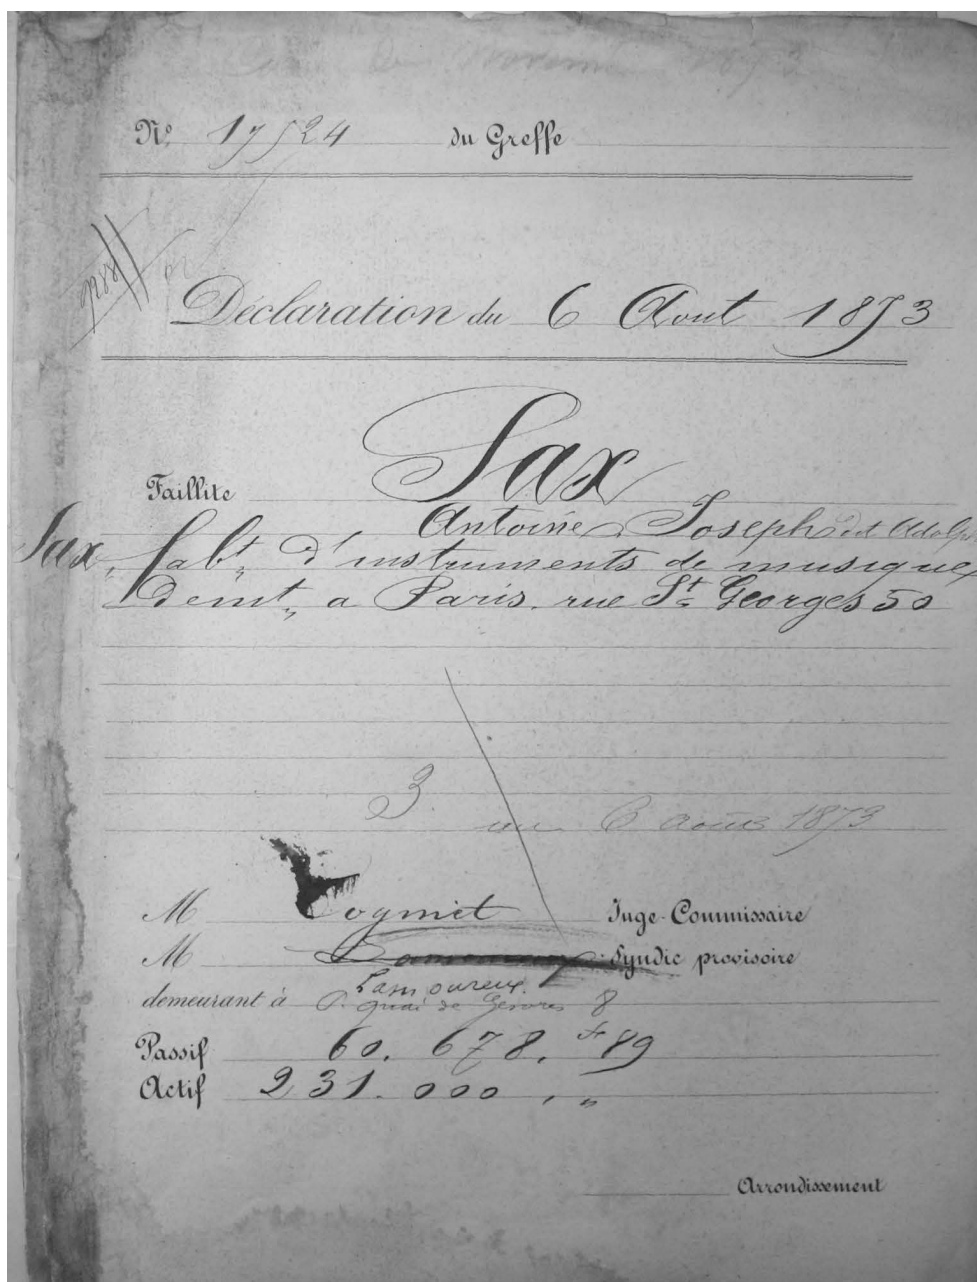 1873
Nº 17524 du Greffe
Déclaration du 6 Aout 1873
Sax
Faillite
Antoine Joseph dit Adolp
Sax, fabt. d'instruments de musique,
demt. a Paris. rue St Georges 50
3.
6 août 1873
M Cogniet Juge-Commissaire
M Syndic provisoire
Lamoureux.
demeurant à P. quai de Gesvres 8
Passif 60.678, fr 89
Actif 231.000, "
Arrondissement